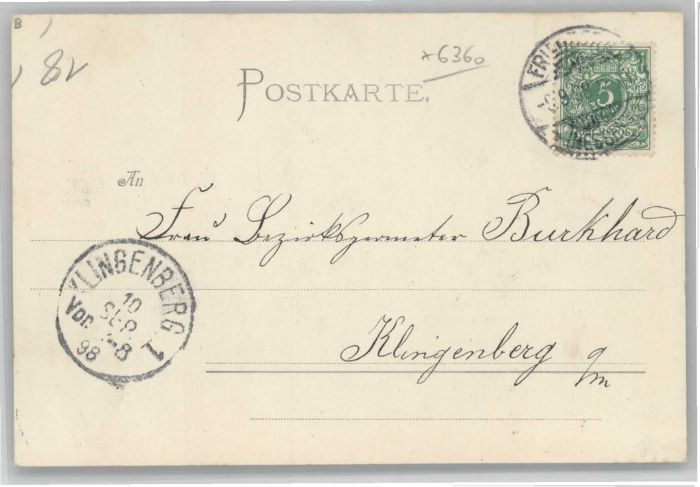 B
82
*6360
POSTKARTE.
5
An
Frau Bezirksgeometer Burkhard
KLINGENBERG 1
10
SEP
Vor. 7-8
98
Klingenberg a/m